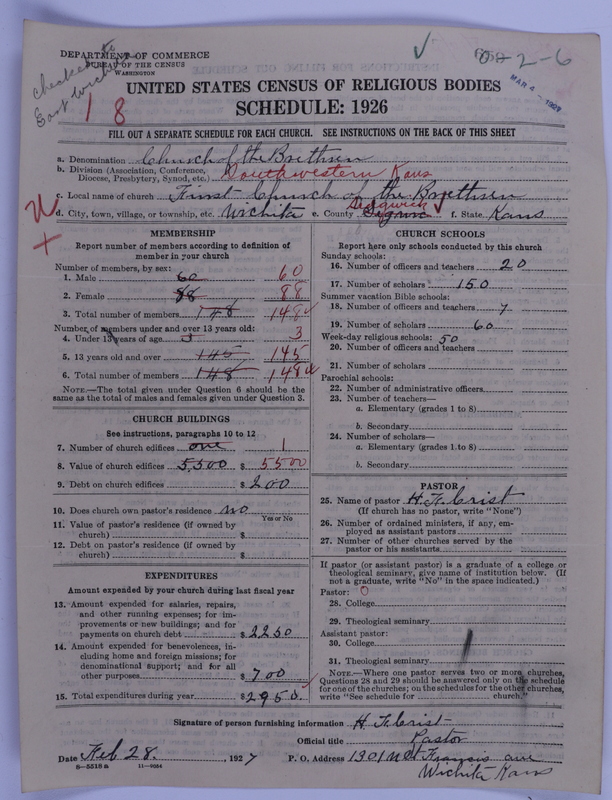 DEPARTMENT OF COMMERCE
BUREAU OF THE CENSUS
WASHINGTON
checked
East Wichita
1 8
0-2-6
MAR 4 - 1927
UNITED STATES CENSUS OF RELIGIOUS BODIES
SCHEDULE: 1926
FILL OUT A SEPARATE SCHEDULE FOR EACH CHURCH. SEE INSTRUCTIONS ON THE BACK OF THIS SHEET
a. Denomination Church of the Brethren
b. Division (Association, Conference, Diocese, Presbytery, Synod, etc.) Southwestern Kans
c. Local name of church First Church of the Brethren
d. City, town, village, or township, etc. Wichita e. County Sedgwick f. State Kans
MEMBERSHIP
Report number of members according to definition of
member in your church
Number of members, by sex:
1. Male 60 60
2. Female 88 88
3. Total number of members 148 148
Number of members under and over 13 years old:
4. Under 13 years of age 3 3
5. 13 years old and over 145 145
6. Total number of members 148 148
NOTE.—The total given under Question 6 should be
same as the total of males and females given under Question 3.
CHURCH BUILDINGS
See instructions, paragraphs 10 to 12
7. Number of church edifices one 1
8. Value of church edifices 5,500 $ 5500
9. Debt on church edifices $ 200
10. Does church own pastor's residence no
Yes or No
11. Value of pastor's residence (if owned by
church) $
12. Debt on pastor's residence (if owned by
church) $
EXPENDITURES
Amount expended by your church during last fiscal year
13. Amount expended for salaries, repairs,
and other running expenses; for im-
provements or new buildings; and for
payments on church debt $ 2250
14. Amount expended for benevolences, in-
cluding home and foreign missions; for
denominational support; and for all
other purposes $ 700
15. Total expenditures during year $ 2950.
CHURCH SCHOOLS
Report here only schools conducted by this church
Sunday schools:
16. Number of officers and teachers 20
17. Number of scholars 150
Summer vacation Bible schools:
18. Number of officers and teachers 7
19. Number of scholars 60
Week-day religious schools: 50
20. Number of officers and teachers
21. Number of scholars
Parochial schools:
22. Number of administrative officers
23. Number of teachers—
a. Elementary (grades 1 to 8)
b. Secondary
24. Number of scholars—
a. Elementary (grades 1 to 8)
b. Secondary
PASTOR
25. Name of pastor H. F. Crist
(If church has no pastor, write "None")
26. Number of ordained ministers, if any, em-
ployed as assistant pastors
27. Number of other churches served by the
pastor or his assistants
If pastor (or assistant pastor) is a graduate of a college or
theological seminary, give name of institution below. (If
not a graduate, write "No" in the space indicated.)
Pastor: 0
28. College
29. Theological seminary
Assistant pastor:
30. College
31. Theological seminary
NOTE.—Where one pastor serves two or more churches,
Questions 28 and 29 should be answered only on the schedule
for one of the churches; on the schedules for the other churches,
write "See schedule for church."
Signature of person furnishing information H. F. Crist
Official title Pastor
Date Feb 28. , 1927 P. O. Address 1301 N St Francis ave
8—5518 a 11—9054 Wichita Kans